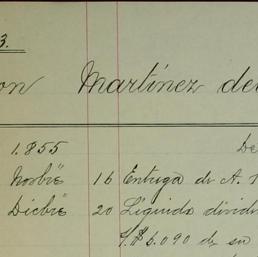 3.
on Martínez de
1.855 De
Novbrē 16 Entrega de A.
Dicbrē 20 Líquido divid
S/$ 6.090 de su